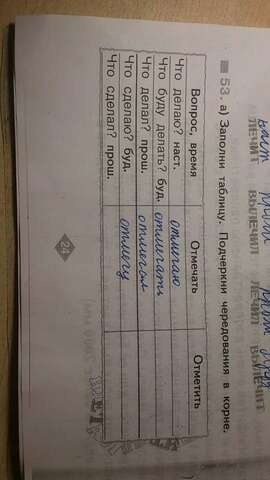 ЛЕЧИТ ВЫЛЕЧИЛ ЛЕЧИЛ ВЫЛЕЧИТ
53. а) Заполни таблицу. Подчеркни чередования в корне.
Вопрос, время Отмечать Отметить
Что делаю? наст. отмечаю
Что буду делать? буд. отмечать
Что делал? прош. отмечал
Что сделаю? буд. отмечу
Что сделал? прош.
24